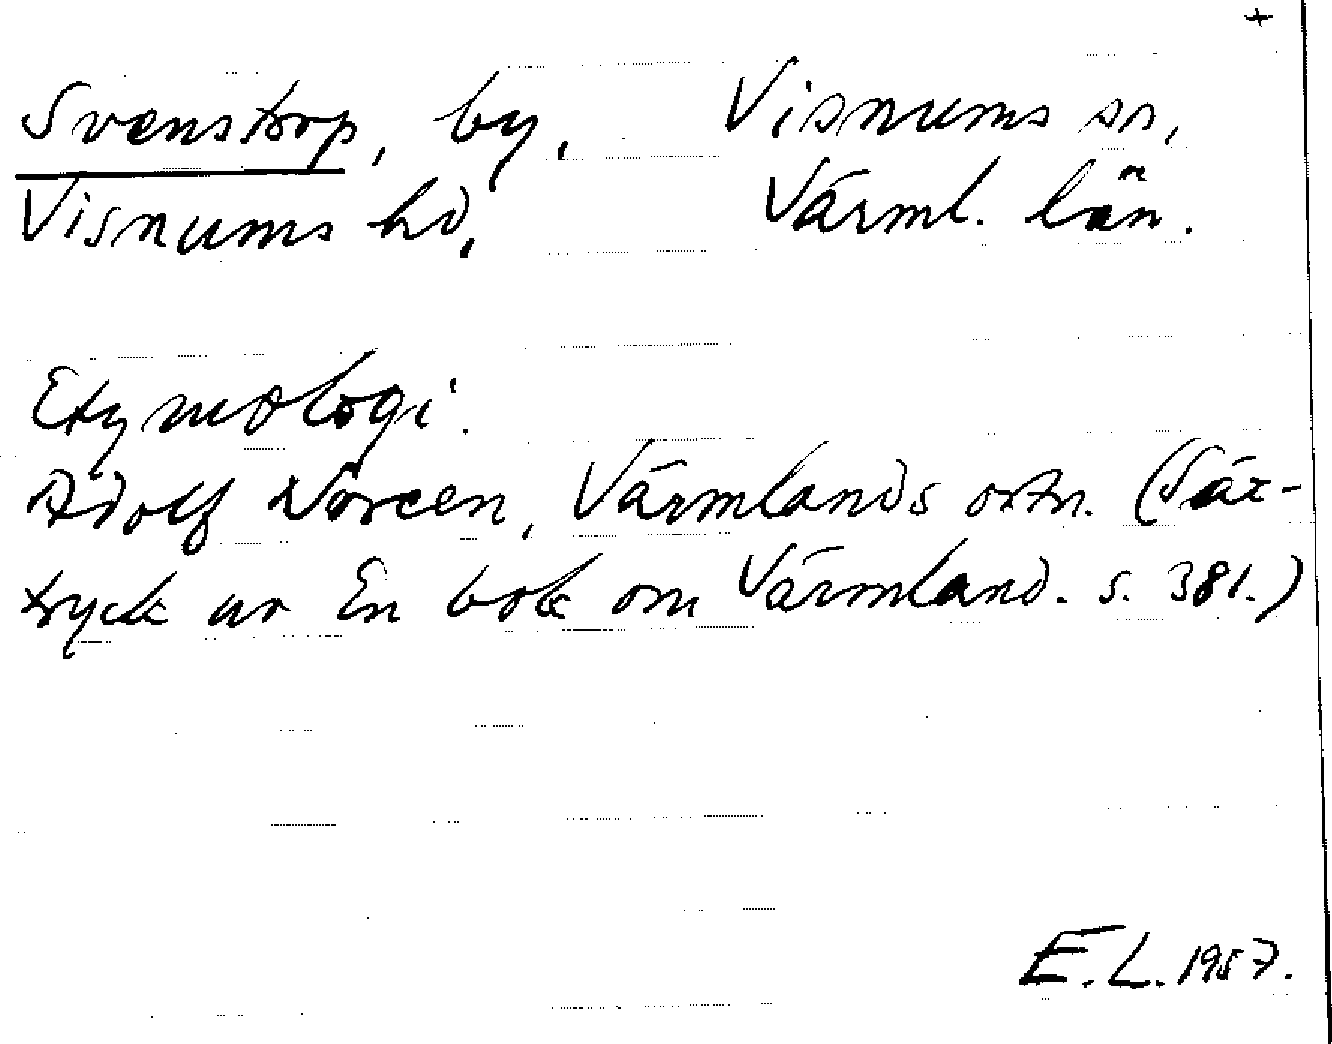 +
Svenstorp, by. Visnums sn,
Visnums hd, Värml. län.
Etymologi.
Adolf Noreen, Värmlands ortn. (Sär-
tryck ur En bok om Värmland. s. 381.)
E. L. 1957.